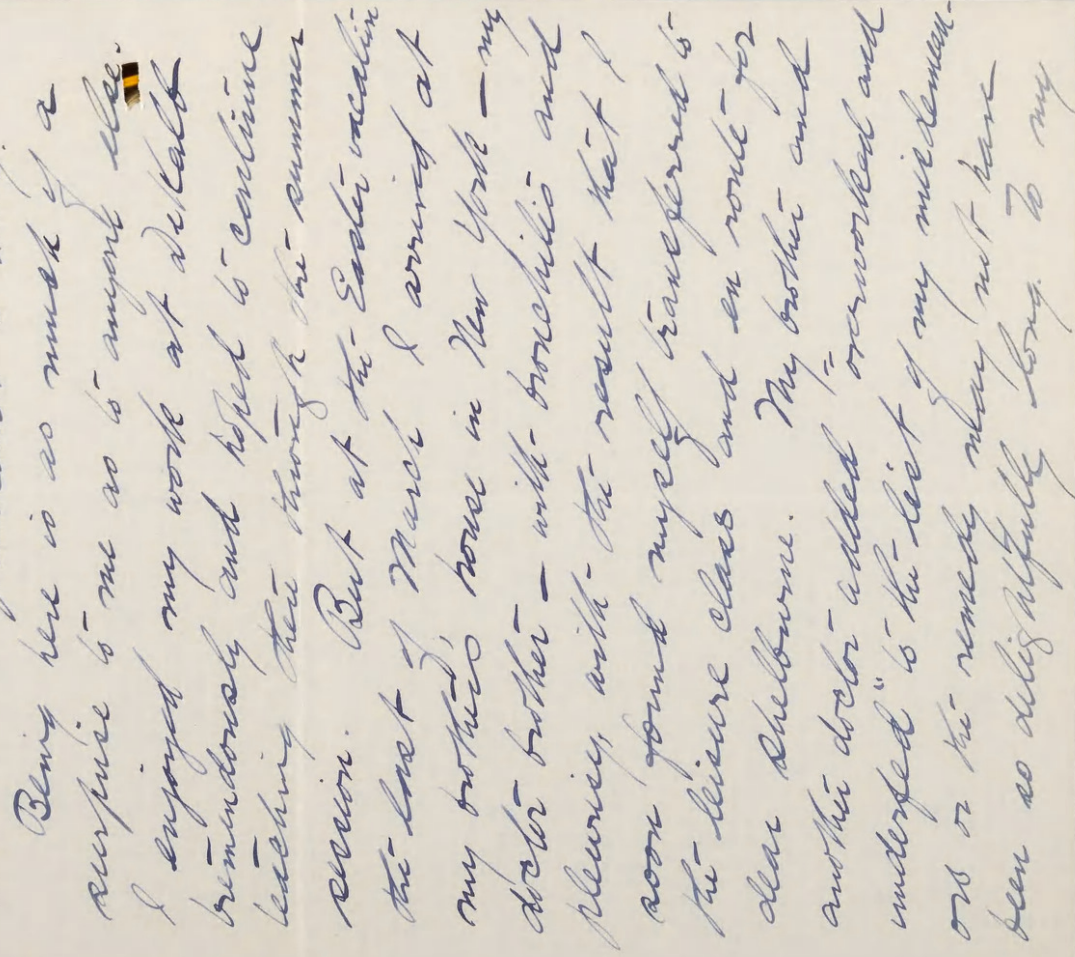 Being here is as much of a
surprise to me as to anyone else.
I enjoyed my work at DeKalb
tremendously and hoped to continue
teaching there through the summer
session. But at the Easter vacation
the last of March I arrived at
my brother's house in New York — my
doctor brother — with bronchitis and
pleurisy, with the result that I
soon found myself transferred to
the leisure class and en route for
dear Shelburne. My brother and
another doctor added "overworked and
underfed" to the list of my misdemean-
ors or the remedy may not have
been so delightfully long. To my